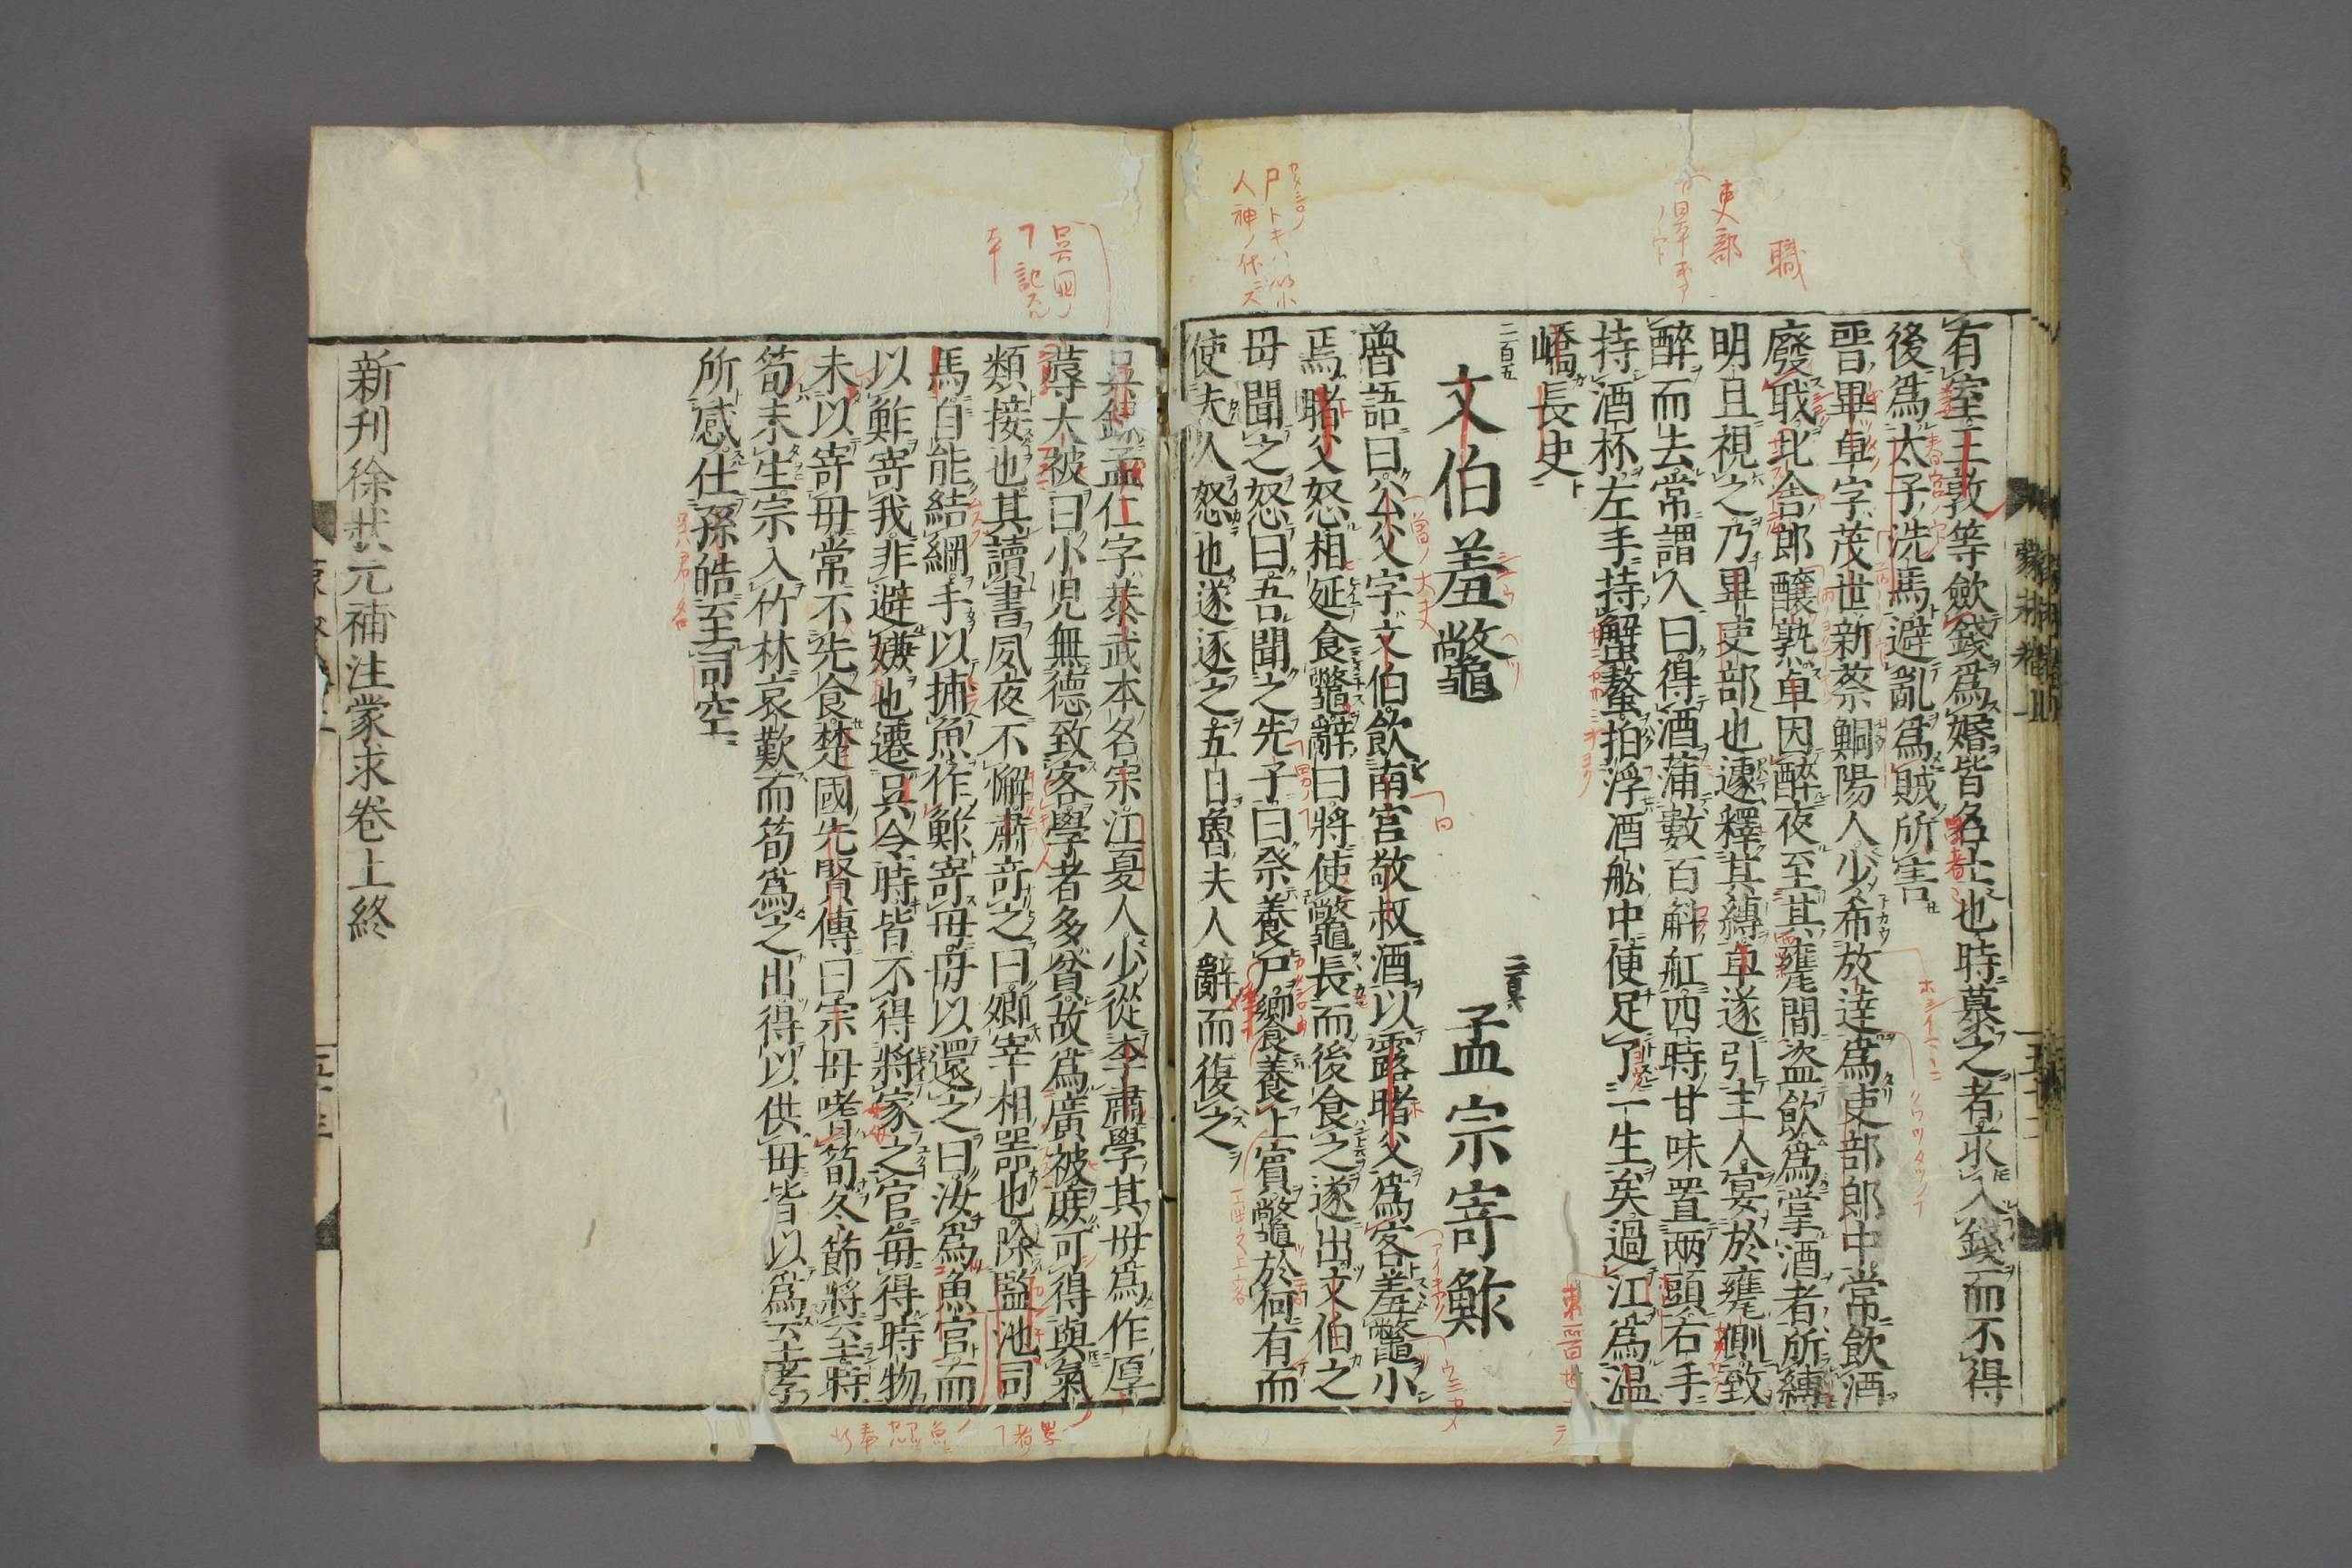 有室王敦等斂錢爲婚皆名士也時慕之者求入錢而不得
後爲太子洗馬避亂爲賊所害
晉畢卓字茂世新蔡鮦陽人少希放達爲吏部郎中常飲酒
廢職比舍郎釀熟卓因醉夜至其甕間盜飲爲掌酒者所縛
明旦視之乃畢吏部也遽釋其縛卓遂引主人宴於甕側致
醉而去常謂人曰得酒滿數百斛舡四時甘味置兩頭右手
持酒杯左手持蟹螯拍浮酒舩中便足了一生矣過江爲温
嶠長史
二百五
文伯羞鼈
孟宗寄鮓
魯語曰公父字文伯飲南宮敬叔酒以露睹父爲客羞鼈小
焉睹父怒相延食鼈辭曰將使鼈長而後食之遂出文伯之
母聞之怒曰吾聞之先子曰祭養尸饗養上賓鼈於何有而
使夫人怒也遂逐之五日魯夫人辭而復之
吳錄孟仁字恭武本名宗江夏人少從李肅學其母爲作厚
蓐大被曰小児無德致客學者多貧故爲廣被庶可得與氣
類接也其讀書夙夜不懈肅奇之曰卿宰相噐也除監池司
馬自能結網手以捕魚作鮓寄母母以還之曰汝爲魚官而
以鮓寄我非避嫌也遷吳令時皆不得將家之官每得時物
未以寄母常不先食楚國先賢傳曰宗母嗜筍冬節將至時
筍未生宗入竹林哀歎而筍爲之出得以供母皆以爲至孝
所感仕孫皓至司空
新刊徐狀元補注蒙求卷上終
職
吏部